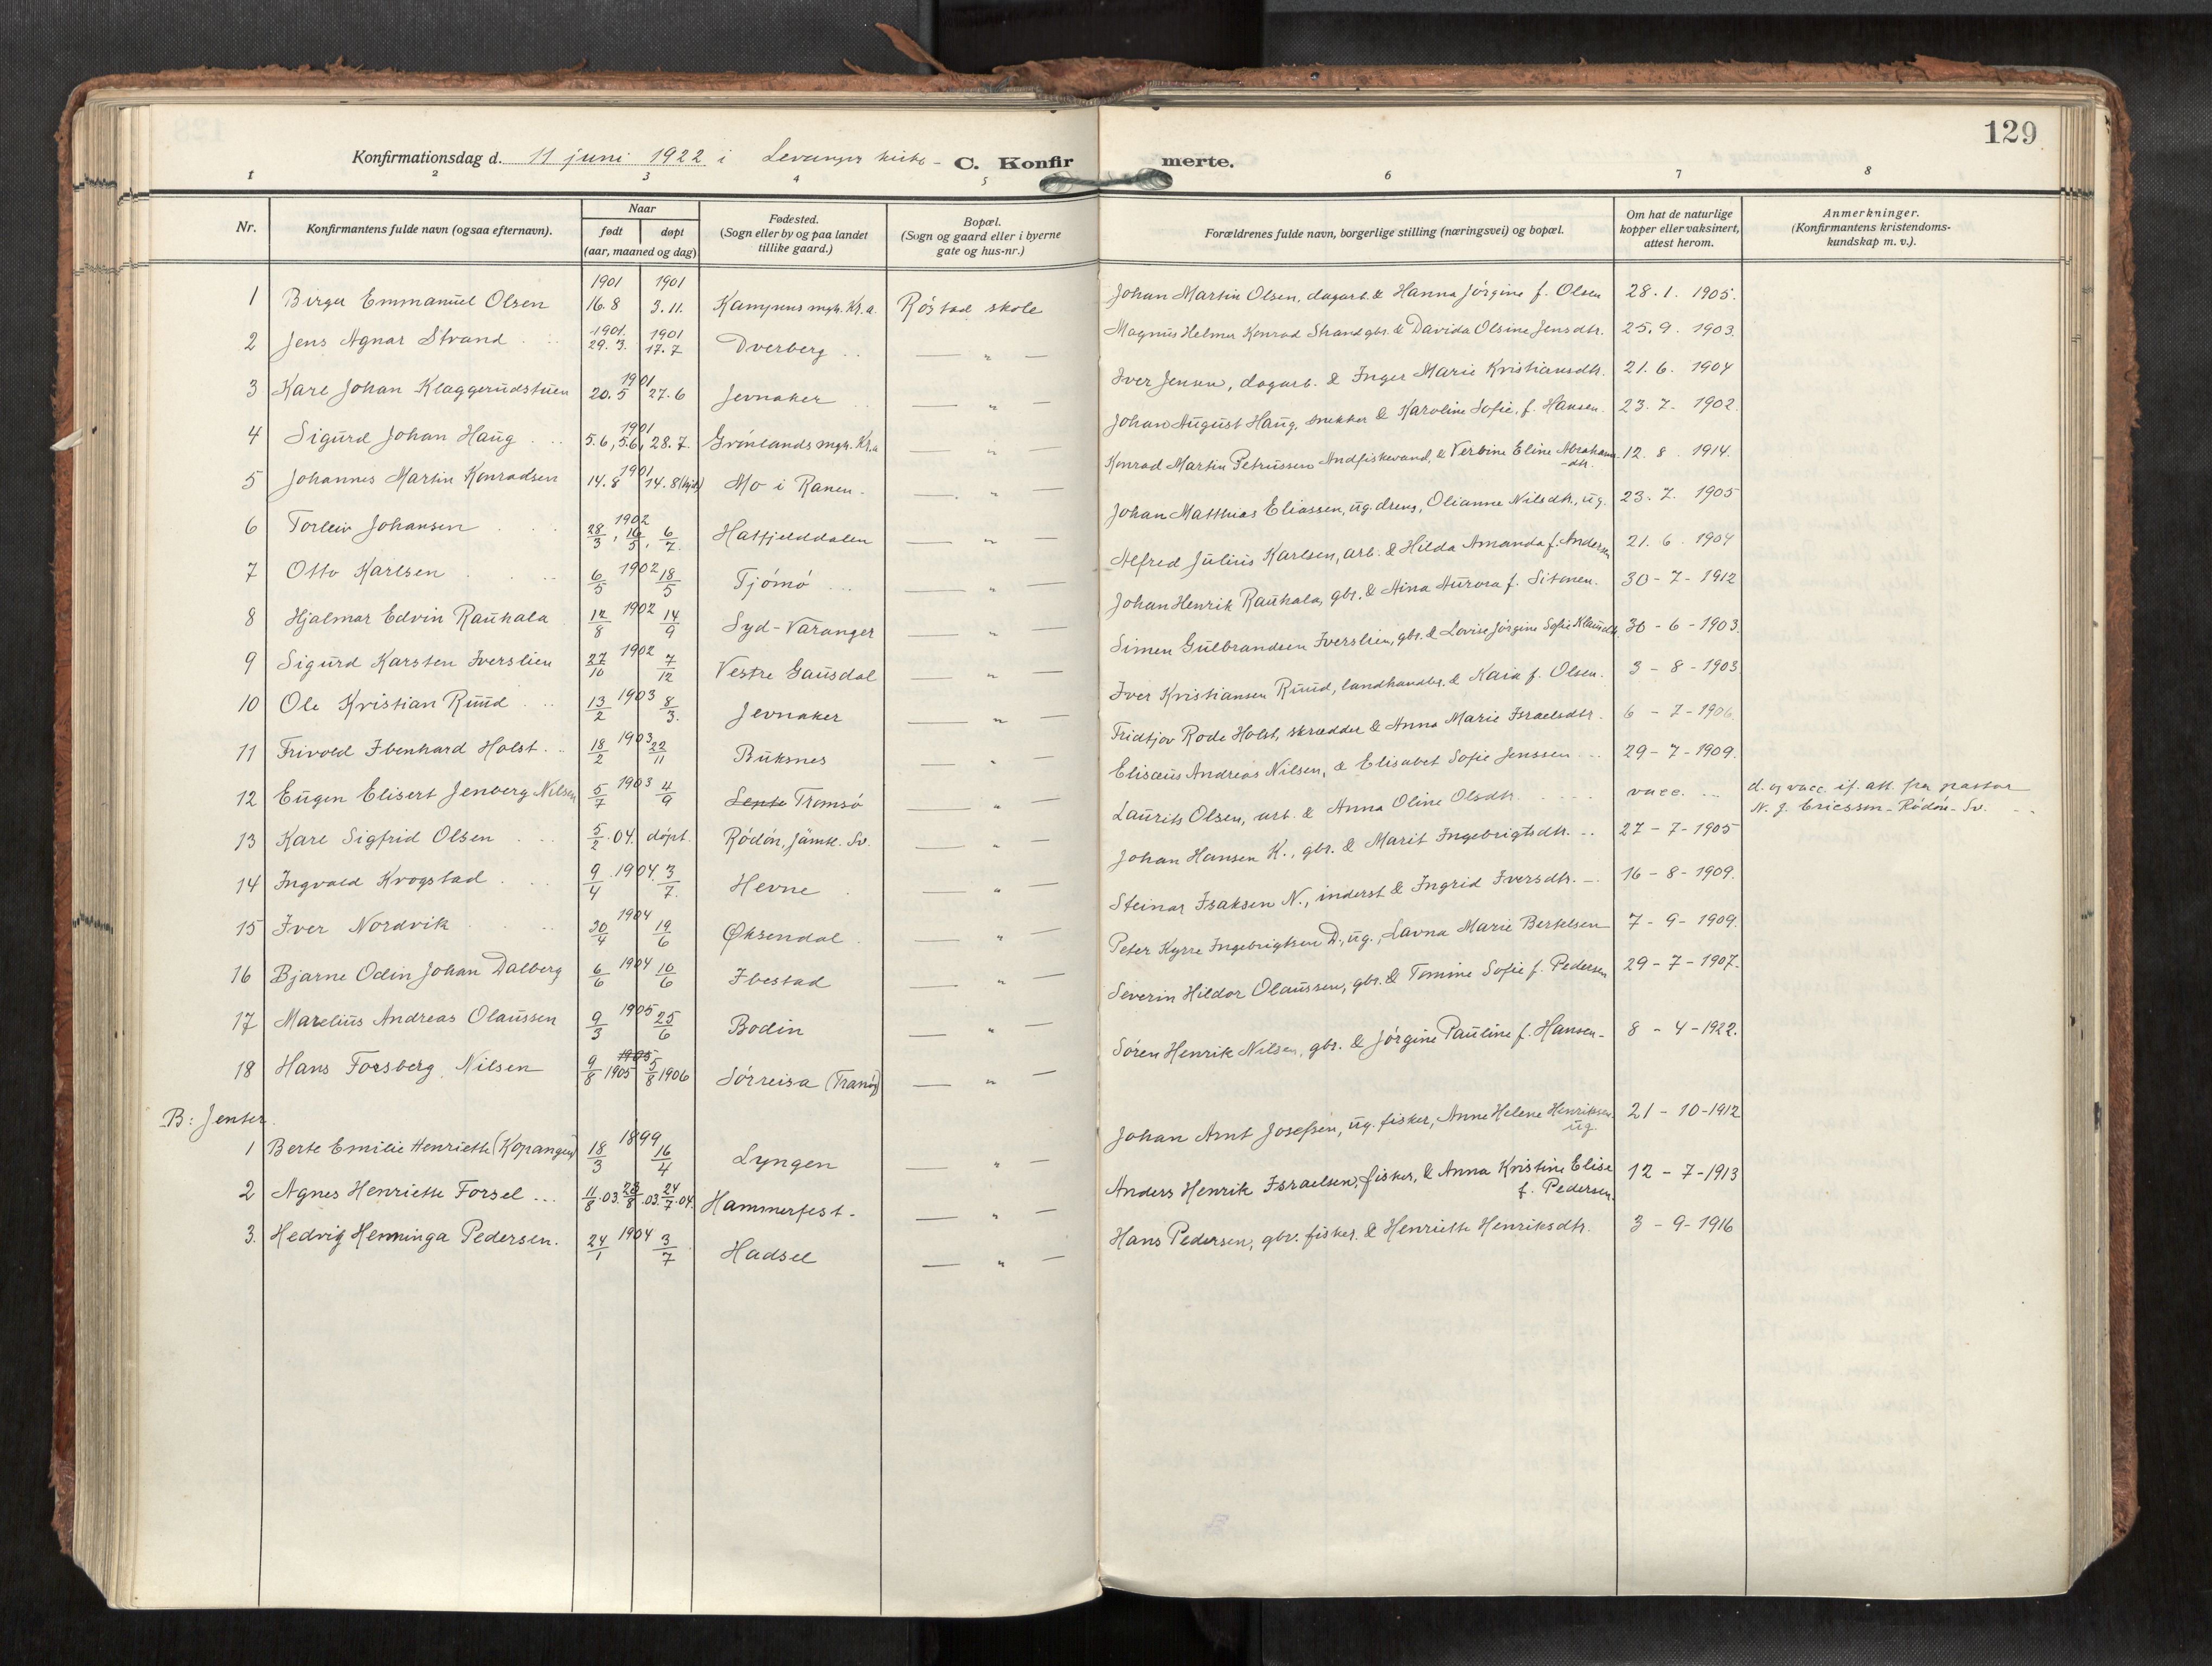 129
Konfirmationsdag d. 11 juni 1922 i Levanger kirke - C. Konfirmerte.
1 2 3 4 5 6 7 8
Nr. Konfirmantens fulde navn (ogsaa efternavn). Naar født døpt (aar, maaned og dag) Fødested. (Sogn eller by og paa landet tillike gaard.) Bopæl. (Sogn og gaard eller i byerne gate og hus-nr.) Forældrenes fulde navn, borgerlige stilling (næringsvei) og bopæl. Om hat de naturlige kopper eller vaksinert, attest herom. Anmerkninger. (Konfirmantens kristendoms-kundskap m. v.).
1 Birger Emmanuel Olsen 1901 16.8 1901 3.11. Kampens mgh. Kr.a. Röstad skole Johan Martin Olsen, dagarb. & Hanna Jörgine f. Olsen 28.1. 1905.
2 Jens Agnar Strand 1901. 29.3. 1901 17.7 Dverberg — " — Magnus Helmer Konrad Strand gbr. & Davida Olsine Jensdtr. 25.9. 1903.
3 Karl Johan Klaggerudstuen 1901 20.5 27.6 Jevnaker — " — Iver Jensen, dagarb. & Inger Marie Kristiansdtr. 21.6. 1904
4 Sigurd Johan Haug 1901 5.6, 5.6, 28.7. Grönlands mgh. Kr.a — " — Johan August Haug, snekker & Karoline Sofie, f. Hansen. 23.7. 1902.
5 Johannes Martin Konradsen 1901 14.8 14.8 (hjd) Mo i Ranen. — " — Konrad Martin Petrussen Andfiskevand, & Verbine Eline Abrahamsdtr. 12.8. 1914.
6 Torleiv Johansen 1902 28/3, 16/5, 6/7. Hatfjelddalen — " — Johan Matthias Eliassen, ug. dreng, Olianne Nilsdtr., ug. 23.7. 1905
7 Otto Karlsen 6/5 1902 18/5 Tjömö — " — Alfred Julius Karlsen, arb. & Hilda Amanda f. Andersen 21.6. 1904
8 Hjalmar Edvin Rauhala 12/8 1902 14/9 Syd-Varanger — " — Johan Henrik Rauhala, gbr. & Aina Aurora f. Sitonen. 30-7-1912
9 Sigurd Karsten Iverslien 27/10 1902 7/12 Vestre Gausdal — " — Simen Gulbrandsen Iverslien, gbr. & Lovise Jörgine Sofie Klausdtr. 30-6-1903.
10 Ole Kristian Ruud 13/2 1903 8/3. Jevnaker — " — Iver Kristiansen Ruud, landhandler, & Kaia f. Olsen. 3-8-1903
11 Frivold Ibenhard Holst 18/2 1903 22/11 Buksnes — " — Fridtjov Rode Holst, skrædder & Anna Marie Israelsdtr. 6-7-1906.
12 Eugen Elisert Jenberg Nilsen 5/7 1903 4/9 Tromsö — " — Elisæus Andreas Nilsen, & Elisabet Sofie Jenssen 29-7-1909.
13 Karl Sigfrid Olsen 5/2.04. döpt. Rödön, Jämtl. Sv. — " — Laurits Olsen, arb. & Anna Oline Olsdtr. vacc. d. og vacc. if. att. fra pastor N. J. Ericsson - Rödön - Sv.
14 Ingvald Krogstad 9/4. 1904. 3/7. Hevne — " — Johan Hansen K., gbr. & Marit Ingebrigtsdtr. 27-7-1905
15 Iver Nordvik 30/4 1904 19/6 Öksendal — " — Steinar Isaksen N., inderst & Ingrid Iversdtr. 16-8-1909.
16 Bjarne Odin Johan Dalberg 6/6 1904 10/6 Ibestad — " — Peter Kyrre Ingebrigtsen D., ug., Lavna Marie Bertelsen 7-9-1909.
17 Marelius Andreas Olaussen 9/3 1905 25/6 Bodin — " — Severin Hildor Olaussen, gbr. & Tomine Sofie f. Pedersen 29-7-1907.
18 Hans Forsberg Nilsen 1905 9/8 1905 5/8 1906 Sörreisa (Tranöy) — " — Sören Henrik Nilsen, gbr. & Jörgine Pauline f. Hansen 8-4-1922.
B: Jenter.
1 Berte Emilie Henriette (Kopangen) 18/3 1899 16/4 Lyngen — " — Johan Arnt Josefsen, ug. fisker, Anne Helene Henriksen ug. 21-10-1912
2 Agnes Henriette Forsel 11/8.03. 28/8.03. 24/7.04. Hammerfest — " — Anders Henrik Israelsen, fisker, & Anna Kristine Elise f. Pedersen. 12-7-1913
3. Hedvig Henninga Pedersen. 24/1 1904 3/7 Hadsel — " — Hans Pedersen, gbr. fisker. & Henriette Henriksdtr. 3-9-1916